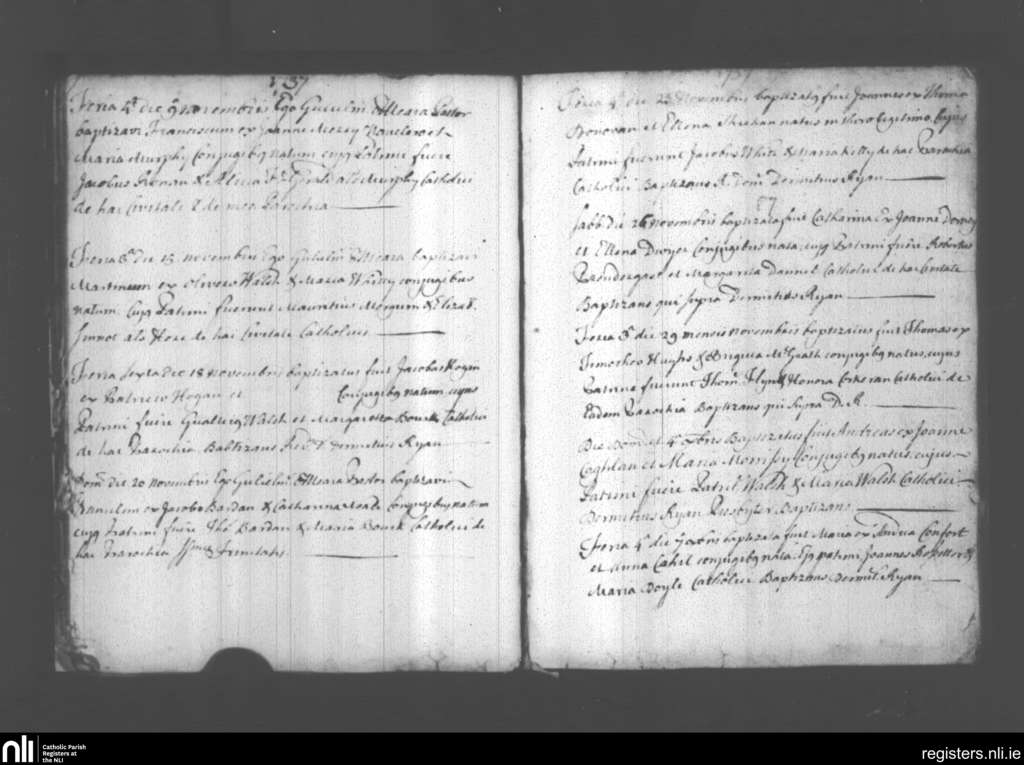 1737
Feria 4ta die 9 novembris Ego Gulielm O Meara Pastor
baptizavi Franciscum ex Joanne et
Maria Murphy Conjugibq natum cujq Patrini fuere
Jacobus & Alicia als Murphy Catholici
de hac Civitate & de mea Parochia
Feria 3a die 15 novembris Ego Gulielm O Meara baptizavi
Martinum ex Olivero Walsh & Maria conjugibus
natum Cujq Patrini fuerunt Mauritius & Elizab.
Sinnot als Hore de hac Civitate Catholici
Feria sexta die 18 novembris baptizatus fuit Jacobus Hogan
ex Patricio Hogan et Conjugibq natum cujus
Patrini fuere Gualterq Walsh et Margaretta Bourk Catholici
de hac Parochia Baptizans Revd D. Dermitius Ryan
Dom die 20 novembris Ego Gulielm O Meara Pastor baptizavi
ex Jacobo Bardan & Catharina Conjugibus natum
cujq Patrini fuere Tho Bardan & Maria Bourk Catholici de
hac Parochia SSmae Trinitatis
1737
Feria 4 die 23 Novembris baptizatq fuit Joannes ex Thoma
Donovan et Ellena Sheehan natus in thoro Legitimo Cujus
Patrini fuerunt Jacobus White & Maria Kelly de hac Parochia
Catholici Baptizans R. Dom Dermitius Ryan
Sabb die 26 novembris baptizata fuit Catharina Ex Joanne
et Ellena Dwyer Conjugibus nata; cujq Patrini fuere Robertus
Prendergast et Margarita Daniel Catholici de hac Civitate
Baptizans qui supra Dermitius Ryan
Feria 3a die 29 mensis novembris baptizatus fuit Thomas ex
Timotheo Hughs & Brigida McGrath conjugibq natus, cujus
Patrini fuerunt Thom Flyn & Honora Corkeran Catholici de
Eadem Parochia Baptizans qui supra D. R.
Die Dom et 4 xbris Baptizatus fuit Andreas ex Joanne
Coghlan et Maria Morrissy Conjugibq natus, cujus
Patrini fuere Patric Walsh & Maria Walsh Catholici
Dermitius Ryan Presbyter Baptizans
Feria 4a die 7 xbris baptizata fuit Maria ex Andrea Confort
et Anna Cahil conjugibq nata; Ejq patrini Joannes &
Maria Doyle Catholici Baptizans Dermit. Ryan
nli
Catholic Parish
Registers at
the NLI
registers.nli.ie